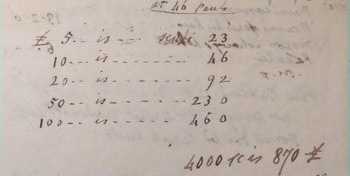 at 46 Pauls
£ 5 -- is -- 23
10 -- is - - - - - - 46
20 -- is - - - - - - 92
50 -- is - - - - - - 230
100 -- is - - - - - - 460
4000 is 870 £